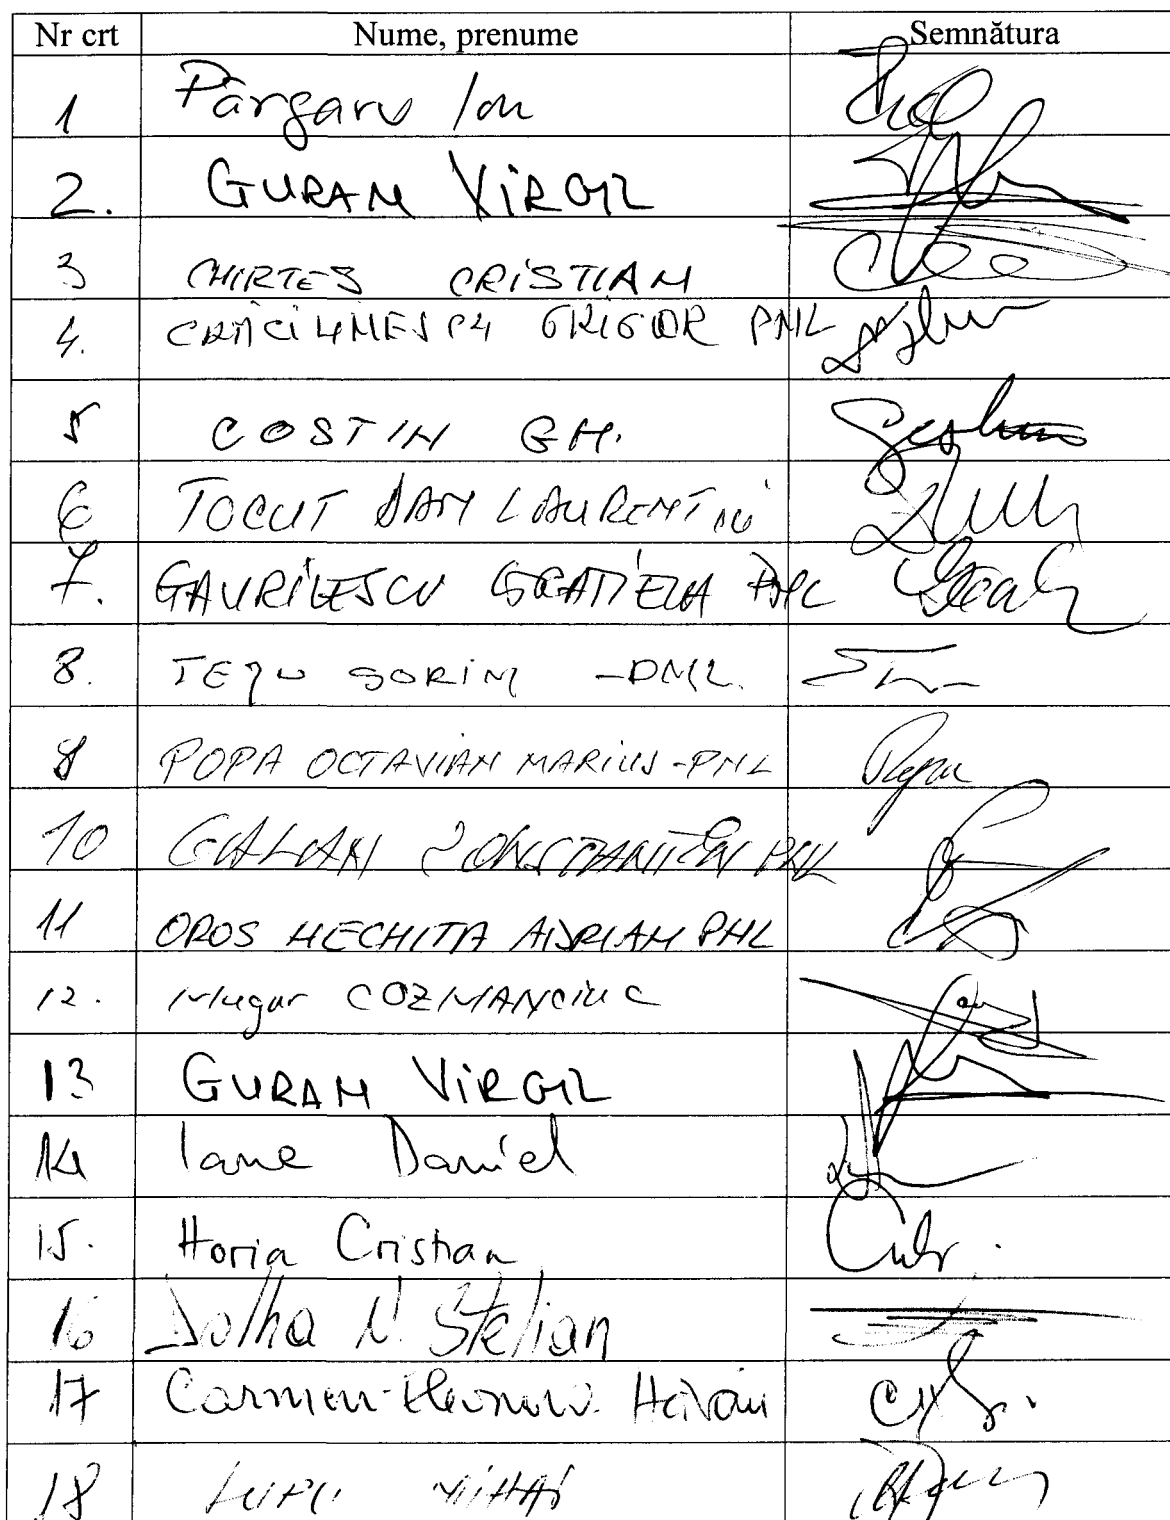 Nr crt Nume, prenume Semnătura
1 Pârgaru Ion
2. GURAN VIRGIL
3 CHIRTEȘ CRISTIAN
4. CRĂCIUNESCU GRIGOR PNL
5 COSTIN GH.
6 TOCUT DAN LAURENȚIU
7. GAVRILESCU GRAȚIELA PNL
8. TEJU SORIN -PNL.
9 POPA OCTAVIAN MARIUS-PNL Popa
10 GALAN CONSTANTIN PNL
11 OROS NECHITA ADRIAN PNL
12. Mugur COZMANCIUC
13 GURAN VIRGIL
14 Iane Daniel
15. Horia Cristian
16 Dolha N. Stelian
17 Carmen-Eleonora Hărău
18 LUPU MIHAI